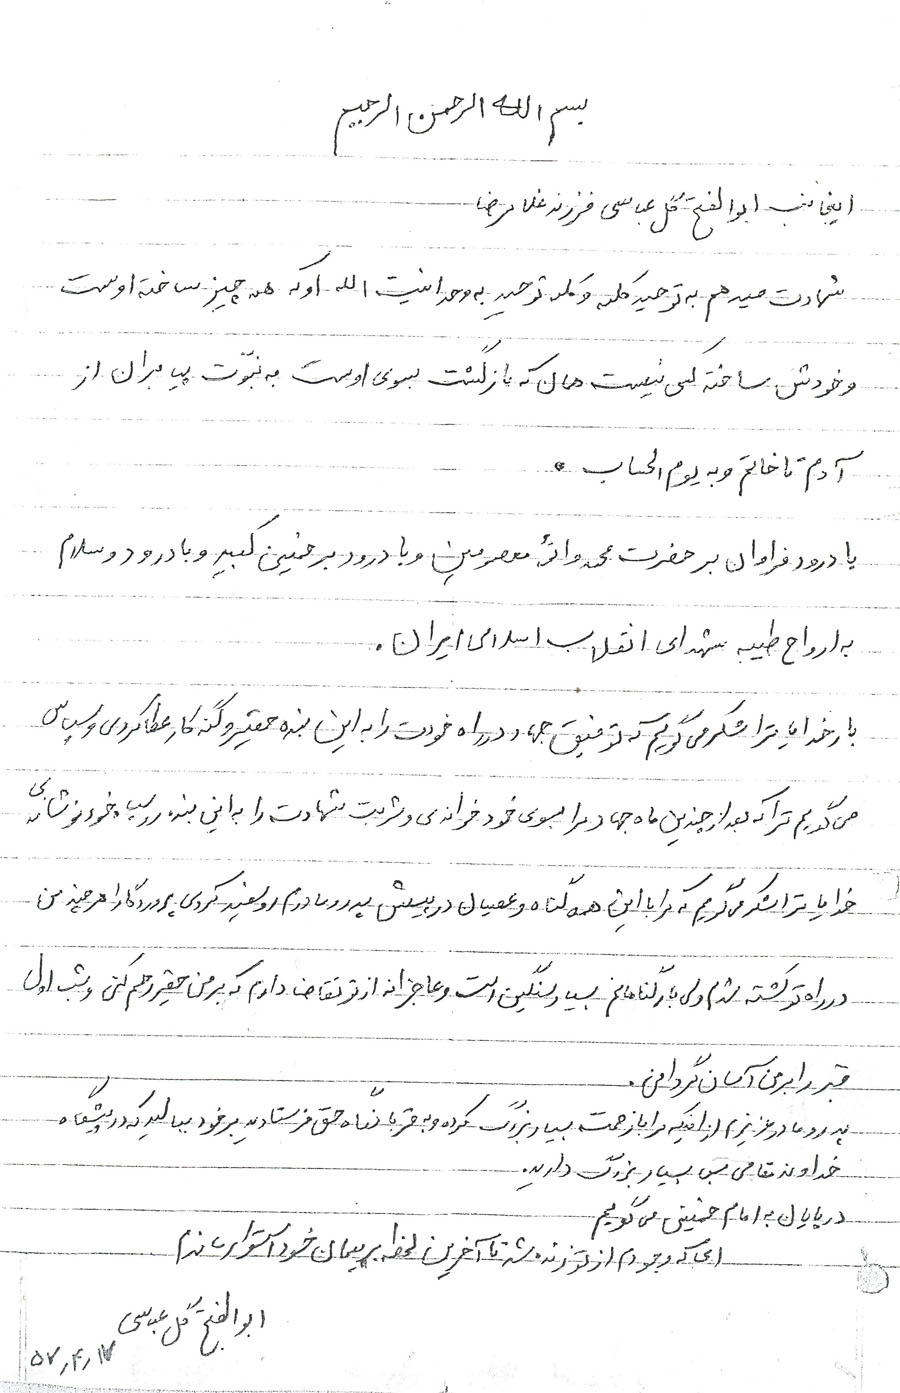 بسم الله الرحمن الرحیم
اینجانب ابوالفتح گل عباسی فرزند غلامرضا
شهادت میدهم به توحید کلمه و کلمه توحید به وحدانیت الله او که همه چیز ساخته اوست
و خودش ساخته کسی نیست همان که بازگشت بسوی اوست به نبّوت پیامبران از
آدم تا خاتم و به یوم الحساب .
با درود فراوان بر حضرت محمد و ائمهٔ معصومین و با درود بر خمینی کبیر و با درود و سلام
به ارواح طیبه شهدای انقلاب اسلامی ایران .
بارخدایا ترا شکر می گویم که توفیق جهاد در راه خودت را به این بنده حقیر و گنه کار عطا کردی و سپاس
می گویم ترا که بعد از چندین ماه جهاد مرا بسوی خود خواندی و شربت شهادت را به این بنده رو سیاه خود نوشاندی
خدایا ترا شکر می گویم که مرا با این همه گناه و عصیان در پیش پدر و مادرم رو سفید کردی پروردگارا هر چند من
در راه تو کشته شدم ولی بار گناهانم بسیار سنگین است و عاجزانه از تو تقاضا دارم که بر من حقیر رحم کنی و شب اول
قبر را بر من آسان گردانی .
پدر و مادر عزیزم از اینکه مرا با زحمت بسیار بزرگ کرده و به قربانگاه حق فرستادید بر خود ببالید که در پیشگاه
خداوند مقامی بس بسیار بزرگ دارید .
در پایان به امام خمینی می گویم
ای که وجودم از تو زنده شد تا آخرین لحظه بر پیمان خود استوار ماندم
ابوالفتح گل عباسی